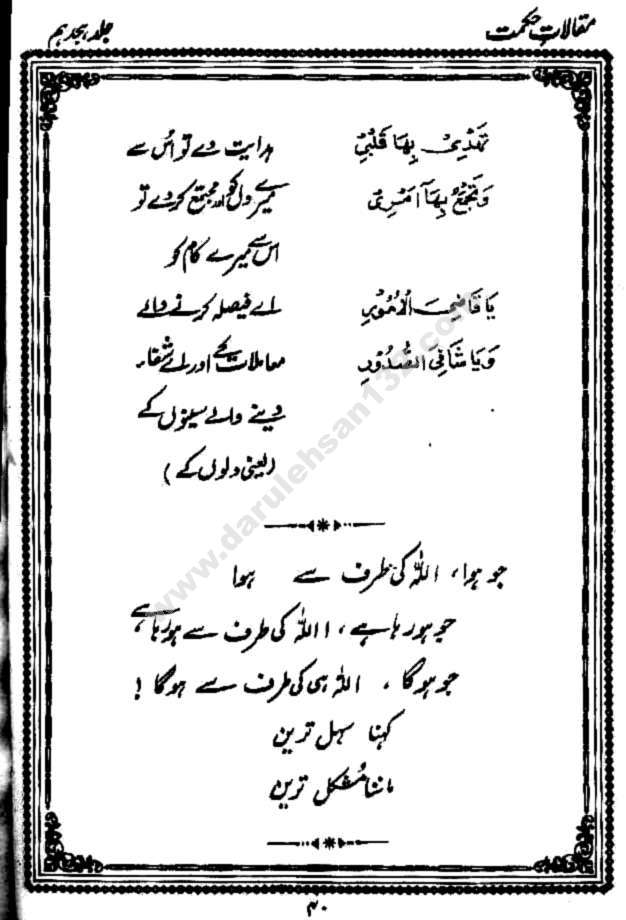 مقالات حکمت جلد ہجدہم
تَهْدِیْ بِهَا قَلْبِیْ ہدایت دے تو اُس سے
وَتَجْمَعُ بِهَآ اَمْرِیْ میرے دل کو اور مجتمع کر دے تو
اس سے میرے کام کو
یَا قَاضِیَ الْاُمُوْرِ اے فیصلہ کرنے والے
وَیَا شَافِیَ الصُّدُوْرِ معاملات کے اور اے شفاء
دینے والے سینوں کے
(یعنی دلوں کے)
جو ہوا، اللہ کی طرف سے ہوا
جو ہو رہا ہے، اللہ کی طرف سے ہو رہا ہے،
جو ہوگا، اللہ ہی کی طرف سے ہوگا!
کہنا سہل ترین
ماننا مُشکل ترین
۴۰
www.darulehsan132.com